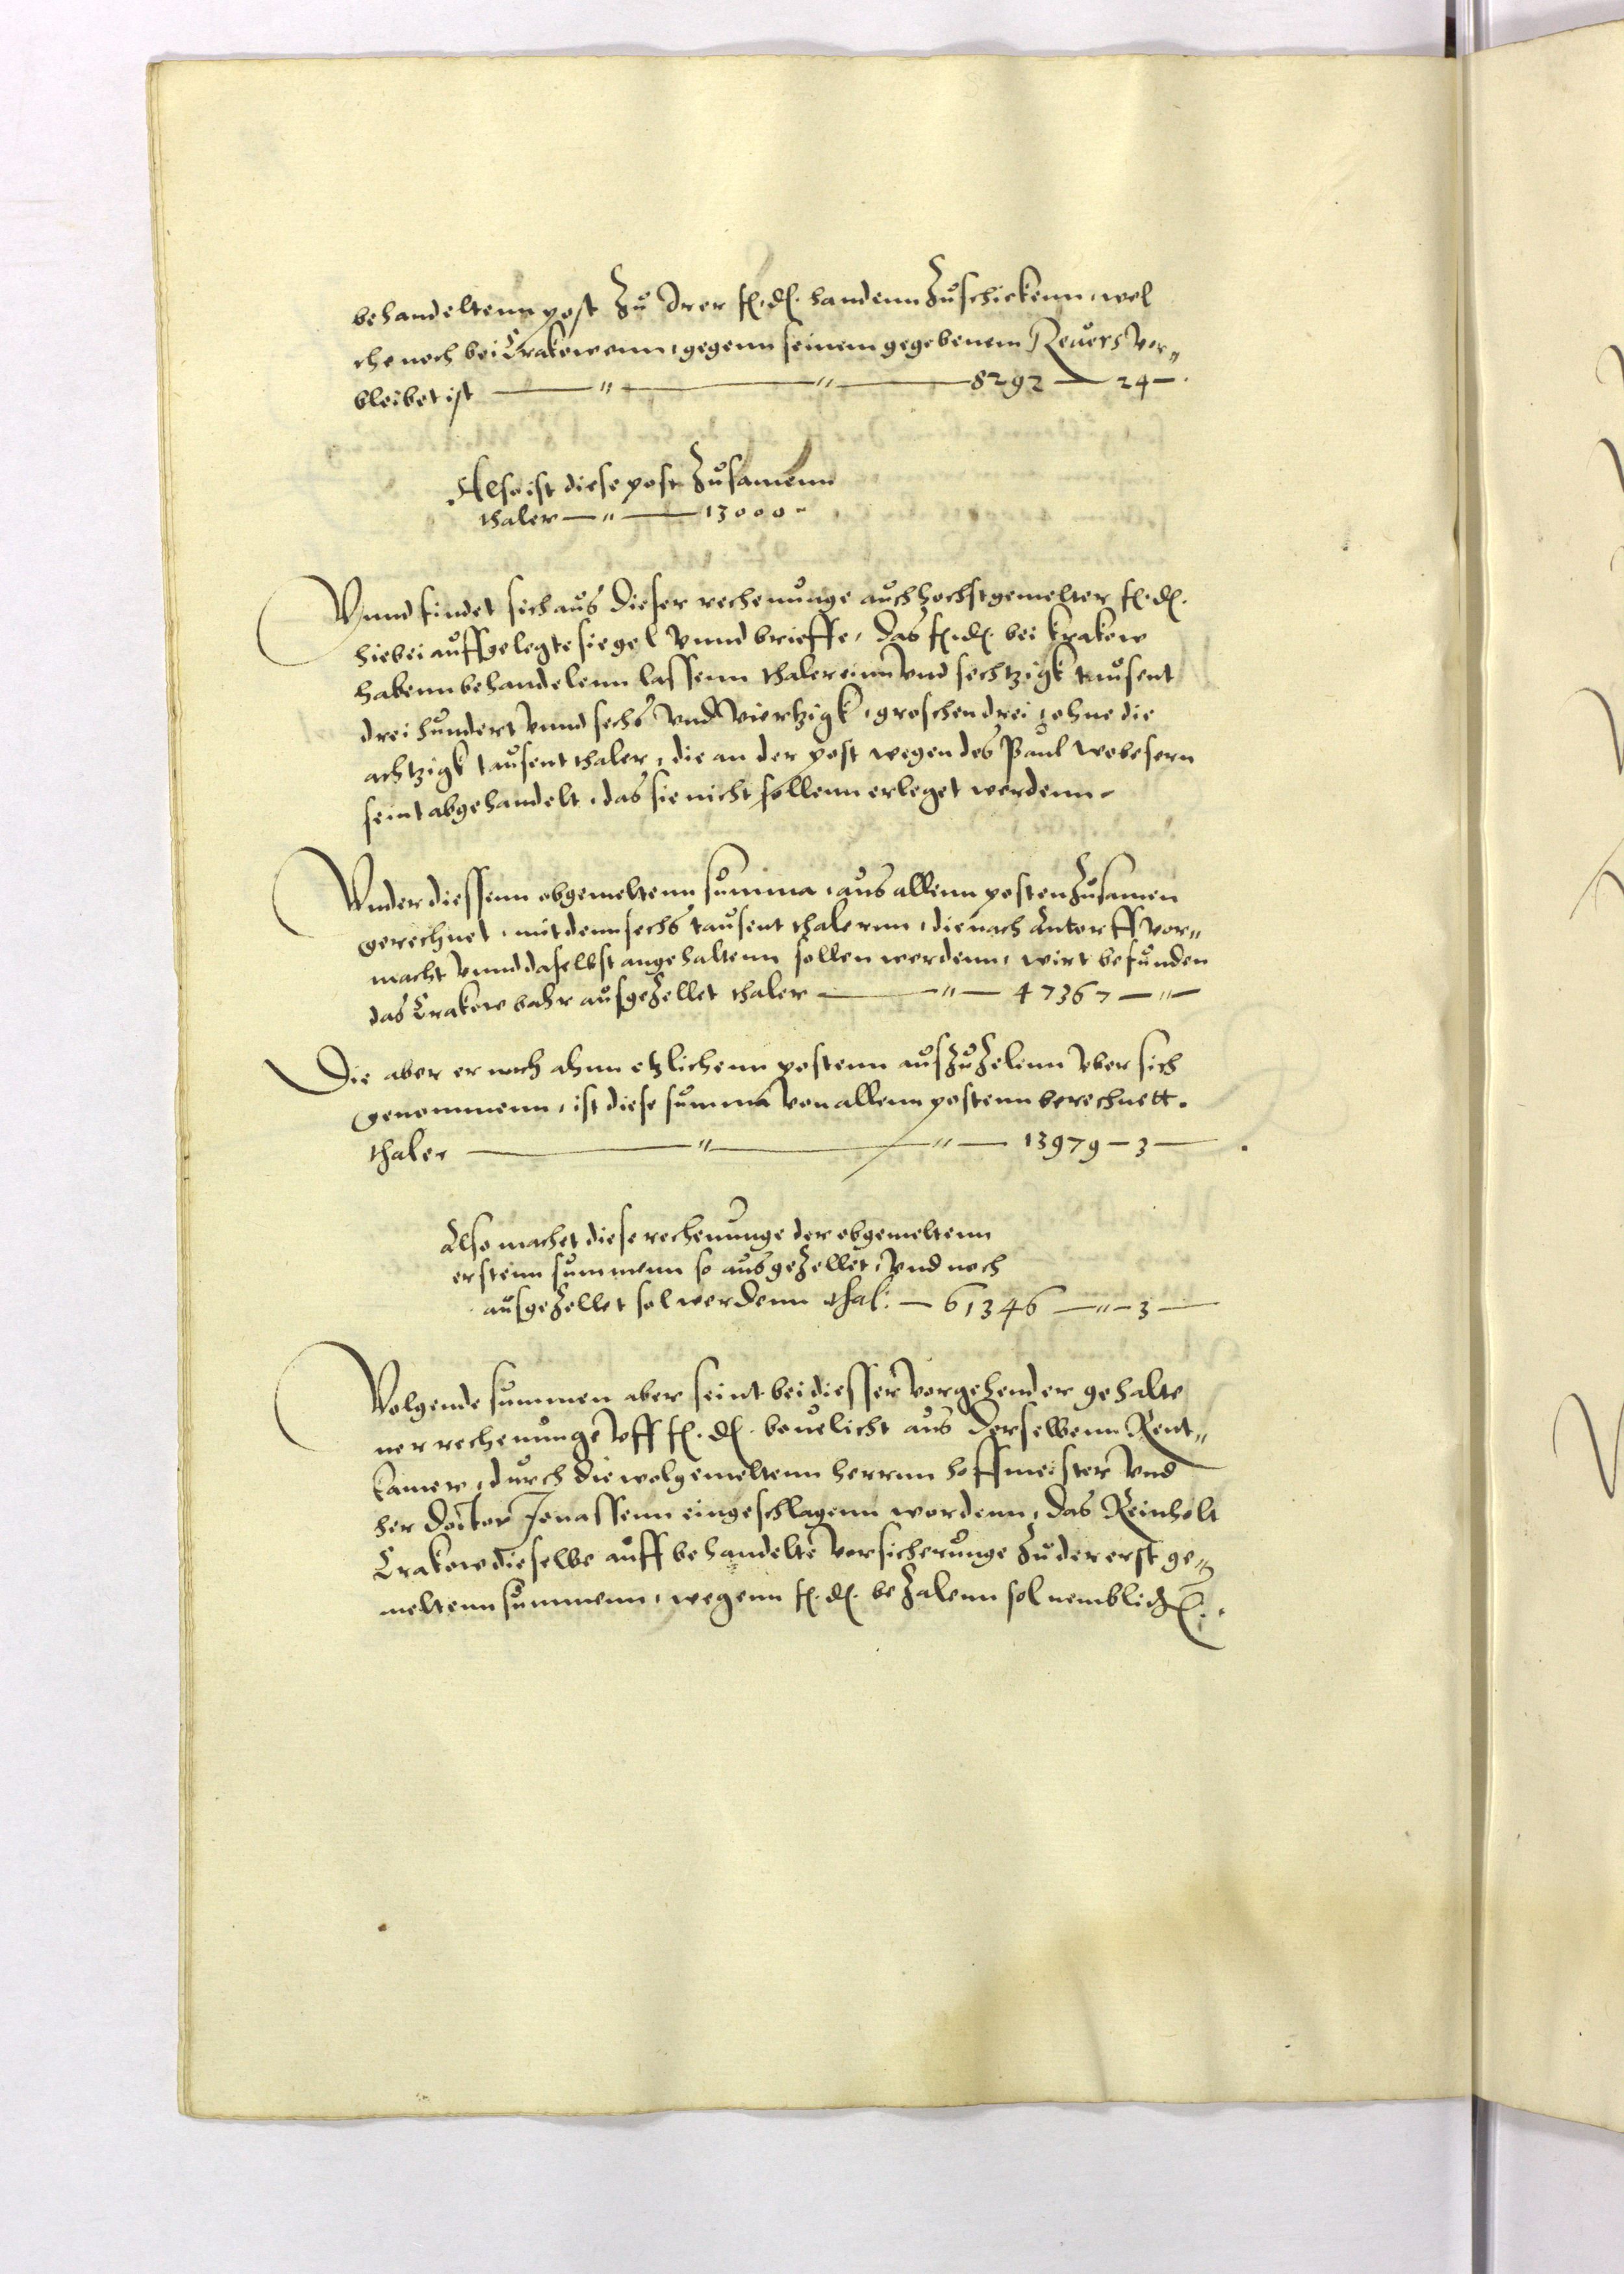 behandeltenn post Zu Irer f. d. handenn Zuschickenn, wel
che noch bei Crakowenn, gegenn seinem gegebenem Reuers vor„
bleibet ist — „ — „ — 8292 — 24 —.
Also ist diese post Zusamenn
thaler — „ — 13000 -
Vnnd findet sich aus dieser rechenunge auch hochstgemelter f. d.
hiebei auffgelegte siegel vnnd brieffe, das f. d. bei Krakow
habenn behandelenn lassenn thaler einn vnd sechtzigk tausent
drei hundert vnnd sechs vnd viertzigk, groschen drei, ohne die
achtzigk tausent thaler, die an der post wegen des Paul Webesern
seint abgehandelt, das sie nicht sollenn erleget werdenn.
Vnder diessenn obgemeltenn summa, aus allenn posten Zusamen
gerechnet, mit denn sechs tausent thalernn, die nach Antorff vor„
macht vnnd daselbst angehaltenn sollen werdenn, wirt befunden
das Crakow bahr ausgeZellet thaler — „ — 47367 — „ —
Die aber er noch ahnn etzlichenn postenn ausZuZelenn vber sich
genommenn, ist diese summa von allenn postenn berechnett.
thaler — „ — „ — 13979 — 3 — .
Also machet diese rechenunge der obgemeltenn
erstenn summenn so ausgeZellet, vnd noch
ausgeZellet sol werdenn thal: — 61346 — „ — 3 —
Volgende summen aber seint bei diesser vorgehender gehalte
ner rechenunge vff f. d. beuelicht aus derselbenn Rent„
kamer, durch die wolgemeltenn herrnn hoffmeister vnd
her doctor Jonassenn eingeschlagenn wordenn, das Reinholt
Crakow dieselbe auff behandelte vorsicherunge Zu der erst ge„
meltenn summenn, wegenn f. d. beZalenn sol nemblich.